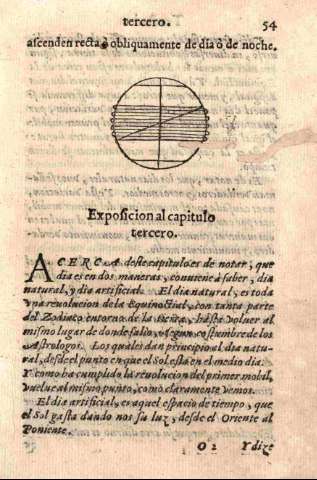 tercero. 54
ascenden recta ò obliquamente de dia ò de noche.
Exposicion al capitulo
tercero.
ACERCA deste capitulo es de notar, que
dia es en dos maneras, conuiene à saber, dia
natural, y dia artificial. El dia natural, es toda
vna reuolucion de la Equinoctial, con tanta parte
del Zodiaco entorno de la tierra, hasta voluer al
mismo lugar de donde salio, segun costumbre de los
Astrologos. Los quales dan principio al dia natu-
ral, desde el punto en que el Sol está en el medio dia.
Y como ha cumplido la reuolucion del primer mobil,
vuelue al mismo punto, como claramente vemos.
El dia artificial, es aquel espacio de tiempo, que
el Sol gasta dando nos su luz, desde el Oriente al
Poniente.
O 2 Y dize